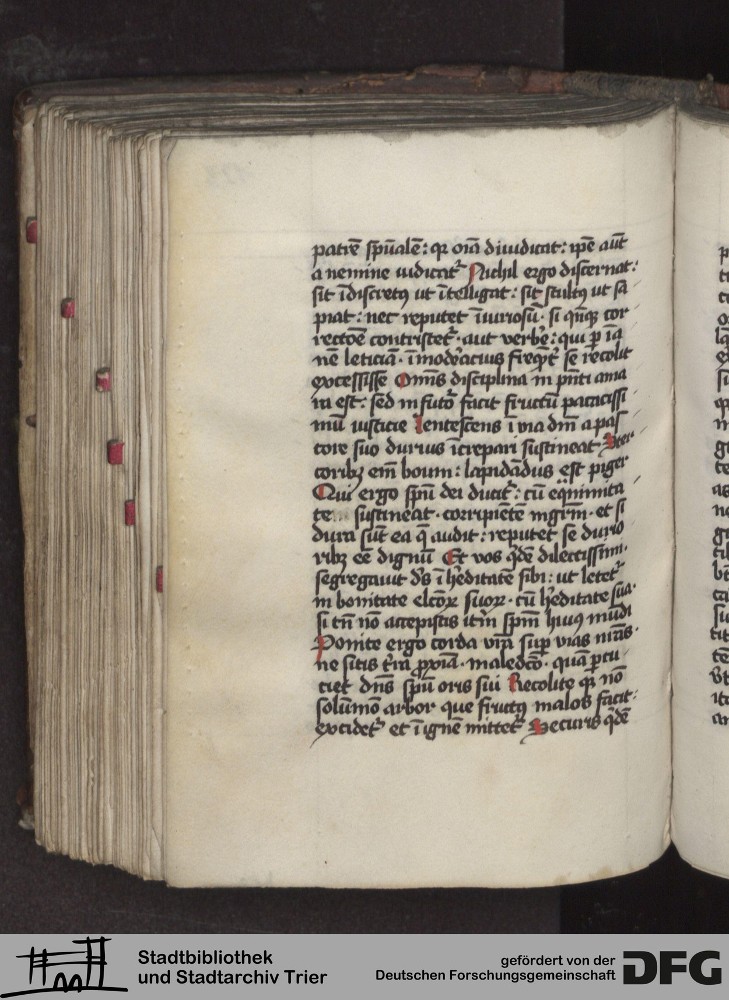 patrē spūalē: qꝛ oīa diiudicat: ipē aūt
a nemine iudicat᷑ Nichil ergo discernat:
sit īdiscretꝰ ut ītelligat: sit stultꝰ ut sa
piat: nec reputet īiuriosū· si qn̄qꝫ cor
rectōe contristet᷑· aut verbe᷑: qui ꝑ ia
nē leticiā· īmod᷑acius freqn̄t᷑ se recolit
excessisse Omīs disciplina in pn̄ti ama
ra est: sed in futō facit fructū pacacissi
mū iusticie Ientescens ī via dn̄i a pas
tore suo durius īcrepari sustineat
coribꝫ em̄ boum: lapidādus est piger
Qui ergo spū dei ducit᷑: cū eqnimita
te sustineat· corripiētē mgr̄m· et si
dura sūt ea q̄ audit: reputet se durio
ribꝫ eē dignū Et vos qͥdē dilectissimi·
segregauit dn̄s ī h᷑editatē sibi: ut letet᷑
in bonitate elcōꝝ suoꝝ· cū h᷑editate sua·
si tn̄ nō accepistis itm̄ spm̄ huiꝰ mūdi
Ponite ergo corda vrā suꝑ vias vrās·
ne sitis tr̄a ꝓxīa· maledcō· quā ꝑcu
ciet dn̄s spū oris sui Recolite qꝛ nō
solūmō arbor que fructꝰ malos facit:
excidet᷑ et ī ignē mittet᷑ Securis qͥdē
Stadtbibliothek
und Stadtarchiv Trier
gefördert von der
Deutschen Forschungsgemeinschaft
DFG